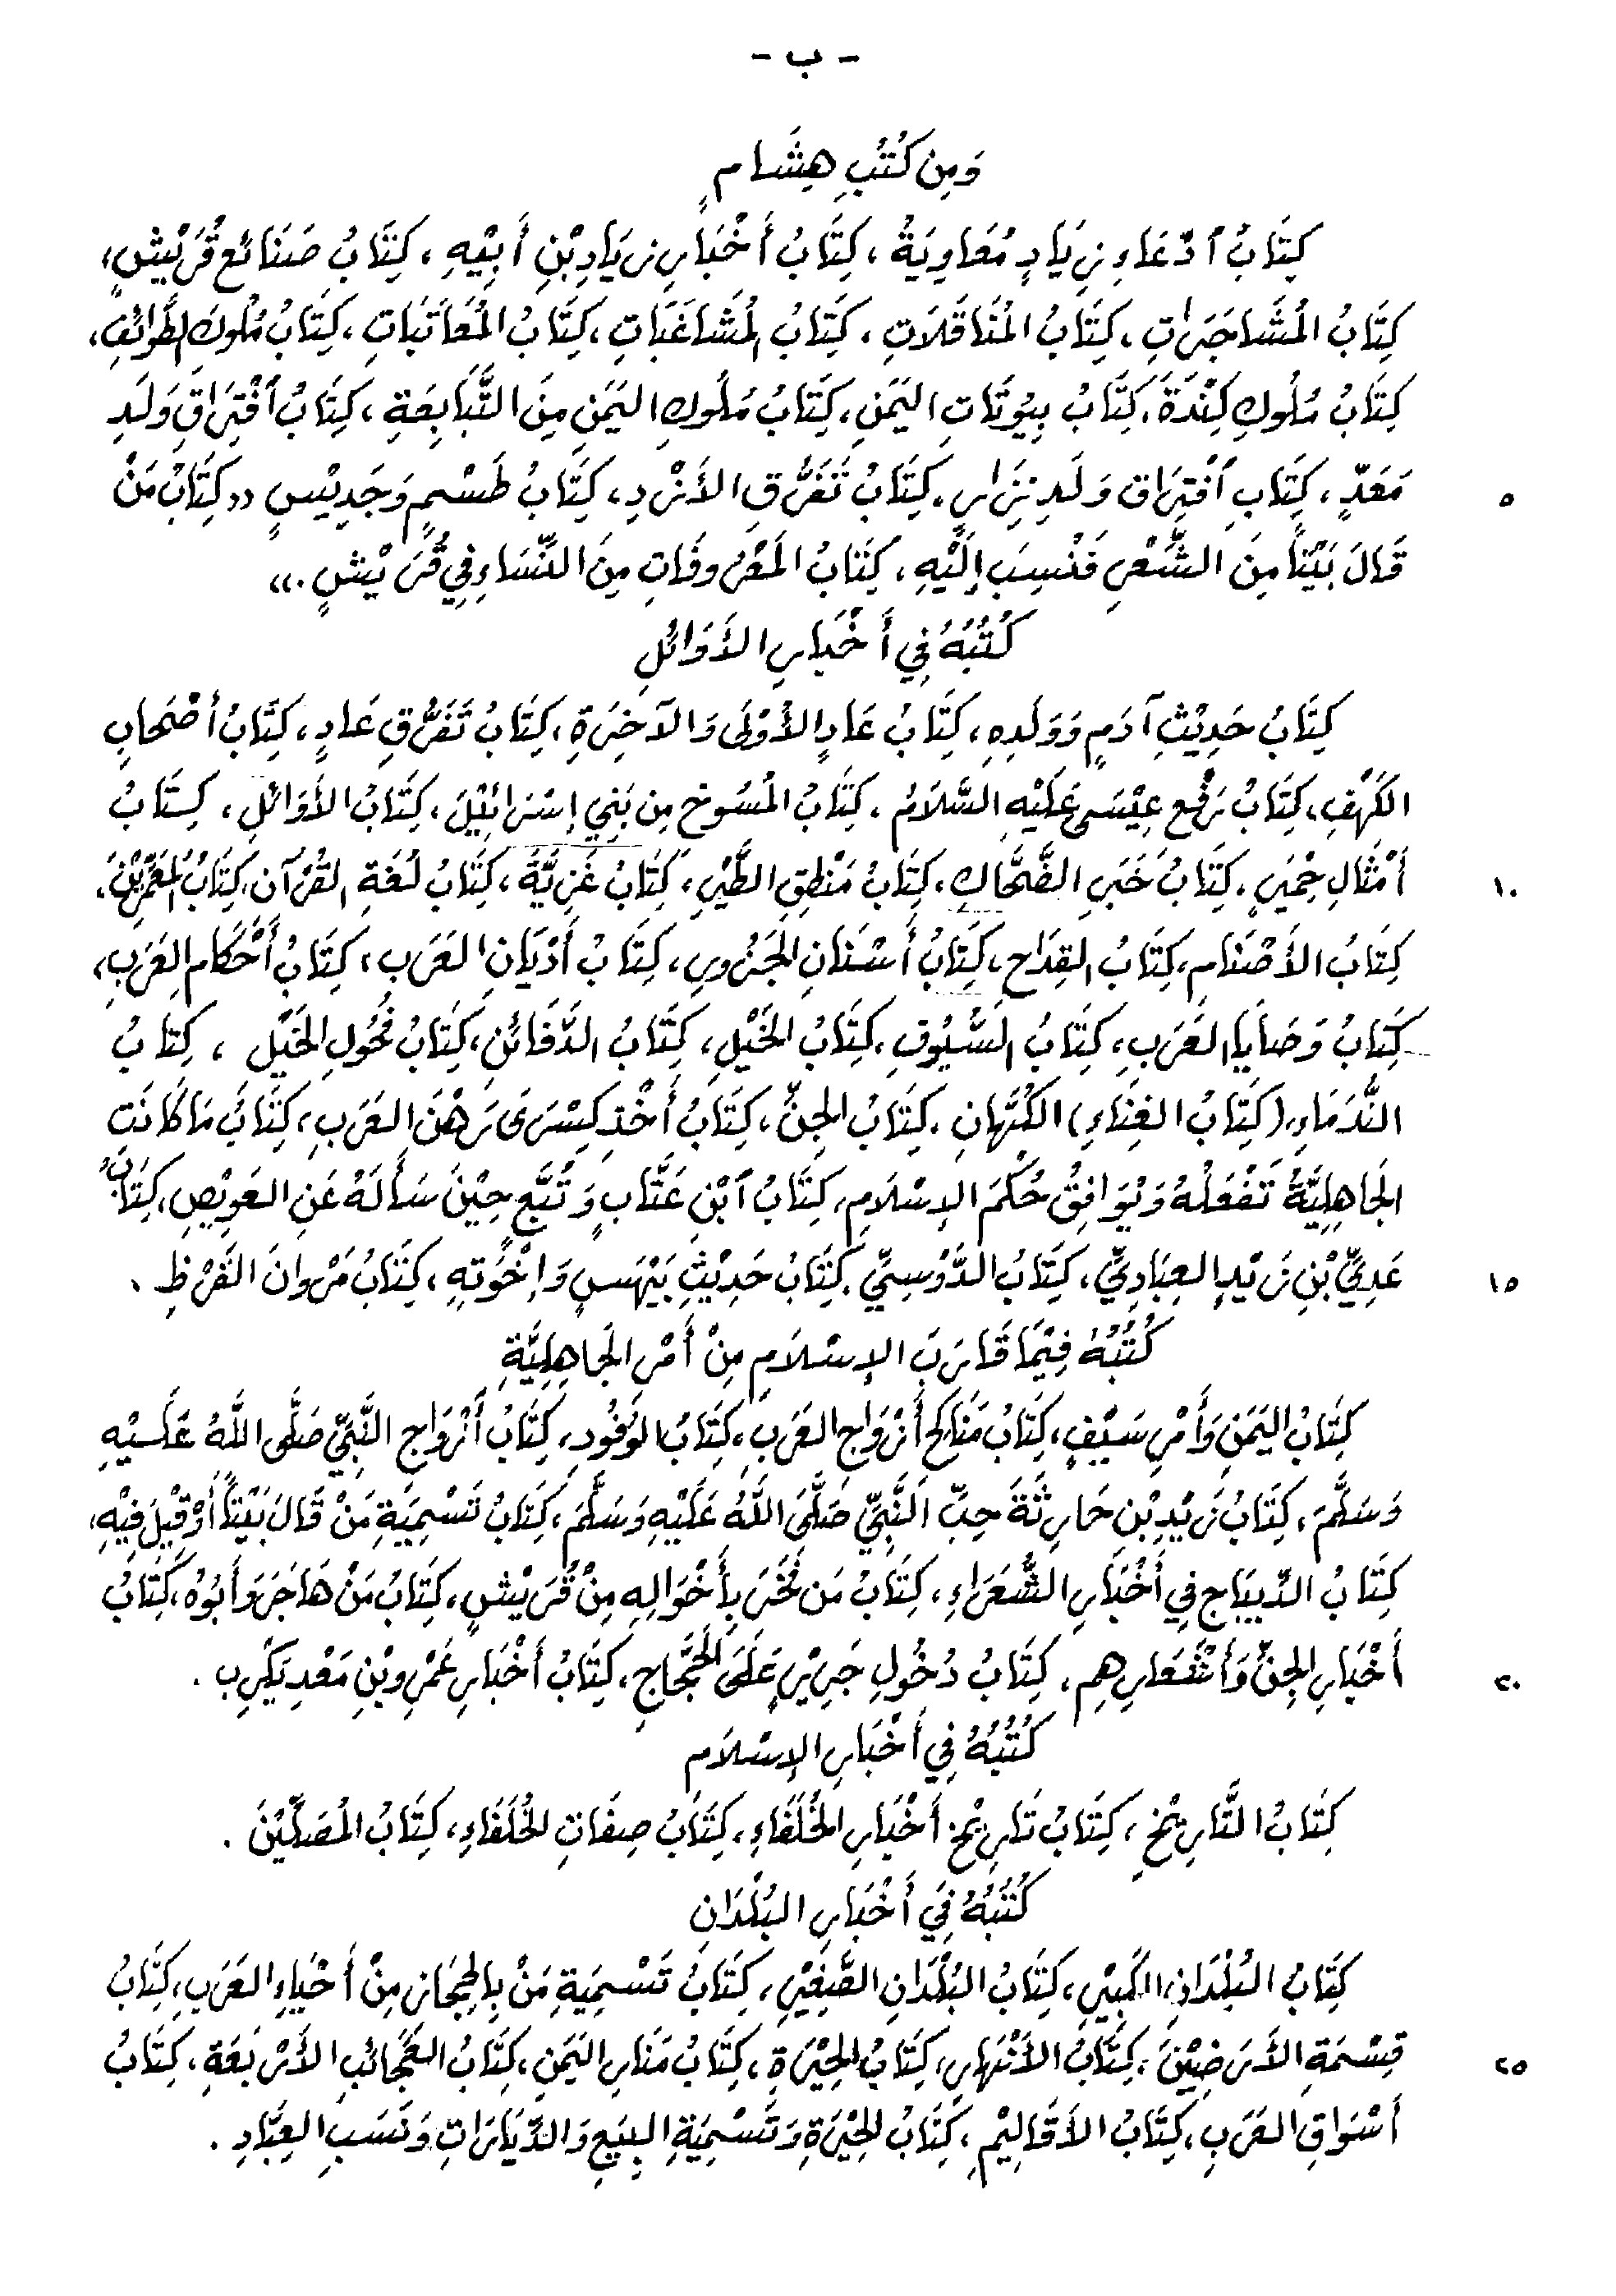 - ب -
وَمِن كُتُبِ هِشَامٍ
كِتَابُ ٱدِّعَاءِ زِيَادٍ مُعَاوِيَةُ ، كِتَابُ أَخْبَارِ زِيَادِ بْنِ أَبِيْهِ ، كِتَابُ صَنَائعِ قُرَيْشٍ ،
كِتَابُ المُشَاجَرَاتِ ، كِتَابُ المُنَاقَلَاتِ ، كِتَابُ المُشَاغَبَاتِ ، كِتَابُ المُعَاتَبَاتِ ، كِتَابُ مُلُوكِ الطَّوَائِفِ ،
كِتَابُ مُلُوكِ كِنْدَةَ ، كِتَابُ بِيُوتَاتِ اليَمَنِ ، كِتَابُ مُلُوكِ اليَمَنِ مِنَ التَّبَابِعَةِ ، كِتَابُ ٱفْتِرَاقِ وَلَدِ
مَعَدٍّ ، كِتَابِ ٱفْتِرَاق وَلَدِ نِزَارٍ ، كِتَابُ تَفَرُّقِ الأَزْدِ ، كِتَابُ طَسْمٍ وَجَدِيْسٍ ,, كِتَابُ مَنْ ٥
قَالَ بَيْتَاً مِنَ الشِّعْرِ فَنُسِبَ إِلَيْهِ ، كِتَابُ المَعْرُوفَاتِ مِنَ النِّسَاءِ فِي قُرَيْشٍ . ،،
كُتُبُهُ فِي أَخْبَارِ الأَوَائلِ
كِتَابُ حَدِيْثِ آدَمٍ وَوَلَدِهِ ، كِتَابُ عَادٍ الأُوْلَى وَالآخِرَةِ ، كِتَابُ تَفَرُّقِ عَادٍ ، كِتَابُ أَصْحَابِ
الكَهْفِ ، كِتَابُ رَفْعِ عِيْسَى عَلَيْهِ السَّلَامُ ، كِتَابُ المُسُوخِ مِن بَنِي إِسْرَائِيْلَ ، كِتَابُ الأَوَائلِ ، كِتَابُ
أَمْثَالِ حِمْيَرٍ ، كِتَابُ خَبَرِ الضَّحَّاكِ ، كِتَابُ مَنْطِقِ الطَّيْرِ ، كِتَابُ غَزِيَّةَ ، كِتَابُ لُغَةِ القُرْآن ، كِتَابُ المُعَمِّرِيْنَ ، ١٠
كِتَابُ الأَصْنَامِ ، كِتَابُ القِدَاحِ ، كِتَابُ أَسْنَانِ الجَزُورِ ، كِتَابُ أَدْيَانِ العَرَبِ ، كِتَابُ أَحْكَامِ العَرَبِ ،
كِتَابُ وَصَايَا العَرَبِ ، كِتَابُ السُّيُوفِ ، كِتَابُ الخَيْلِ ، كِتَابُ الدَّفَائنِ ، كِتَابُ فُحُولِ الخَيْلِ ، كِتَابُ
النُّدَمَاءِ ، (كِتَابُ الغِنَاءِ) الكُهَّانِ ، كِتَابُ الجِنِّ ، كِتَابُ أَخْذِ كِسْرَى رَهْنَ العَرَبِ ، كِتَابُ مَا كَانَت
الجَاهِلِيَّةُ تَفْعَلُهُ وَيُوَافِقُ حُكْمَ الإِسْلَامِ ، كِتَابُ ٱبْنِ عَتَّابٍ وَتُبَّعٍ حِيْنَ سَأَلَهُ عَنِ العَوِيْصِ ، كِتَابُ
عَدِيِّ بْنِ زَيْدٍ العِبَادِيِّ ، كِتَابُ الدَّوْسِيِّ ، كِتَابُ حَدِيْثِ بَيْهَسٍ وَإِخْوَتِهِ ، كِتَابُ مَرْوَانَ القَرْظِ . ١٥
كُتُبُهُ فِيْمَا قَارَبَ الإِسْلَامِ مِنْ أَمْرِ الجَاهِلِيَّةِ
كِتَابُ اليَمَنِ وَأَمْرِ سَيْفٍ ، كِتَابُ مَنَاكِحِ أَزْوَاجِ العَرَبِ ، كِتَابُ الوُفُودِ ، كِتَابُ أَزْوَاجِ النَّبِيِّ صَلَّى اللَّهُ عَلَيْهِ
وَسَلَّمَ ، كِتَابُ زَيْدِ بْنِ حَارِثَةَ حِبِّ النَّبِيِّ صَلَّى اللَّهُ عَلَيْهِ وَسَلَّمَ ، كِتَابُ تَسْمِيَةِ مَنْ قَالَ بَيْتَاً أَوْ قِيْلَ فِيْهِ ،
كِتَابُ الدِّيبَاجِ فِي أَخْبَارِ الشُّعَرَاءِ ، كِتَابُ مَن فَخَرَ بِأَخْوَالِهِ مِنْ قُرَيْشٍ ، كِتَابُ مَنْ هَاجَرَ وَأَبُوْهُ ، كِتَابُ
أَخْبَارِ الجِنِّ وَأَشْعَارِهِم ، كِتَابُ دُخُولِ جَرِيْرٍ عَلَى الحَجَّاجِ ، كِتَابُ أَخْبَارِ عَمْرِو بْنِ مَعْدِ يَكَرِب . ٢٠
كُتُبُهُ فِي أَخْبَارِ الإِسْلَامِ
كِتَابُ التَّارِيْخِ ، كِتَابُ تَارِيْخِ أَخْبَارِ الخُلَفَاءِ ، كِتَابُ صِفَاتِ الخُلَفَاءِ ، كِتَابُ المُصَلِّيْنَ .
كُتُبُهُ فِي أَخْبَارِ البُلْدَانِ
كِتَابُ البُلْدَانِ الكَبِيْرِ ، كِتَابُ البُلْدَانِ الصَّغِيْرِ ، كِتَابُ تَسْمِيَةِ مَنْ بِالحِجَازِ مِنْ أَحْيَاءِ العَرَبِ ، كِتَابُ
قِسْمَةِ الأَرَضِيْنَ ، كِتَابُ الأَنْهَارِ ، كِتَابُ الحِيْرَةِ ، كِتَابُ مَنَارِ اليَمَنِ ، كِتَابُ العَجَائبِ الأَرْبَعَةِ ، كِتَابُ ٢٥
أَسْوَاقِ العَرَبِ ، كِتَابُ الأَقَالِيْمِ ، كِتَابُ الحِيْرَةِ وَتَسْمِيَةِ البِيَعِ وَالدِّيَارَاتِ وَنَسَبِ العِبَّادِ .